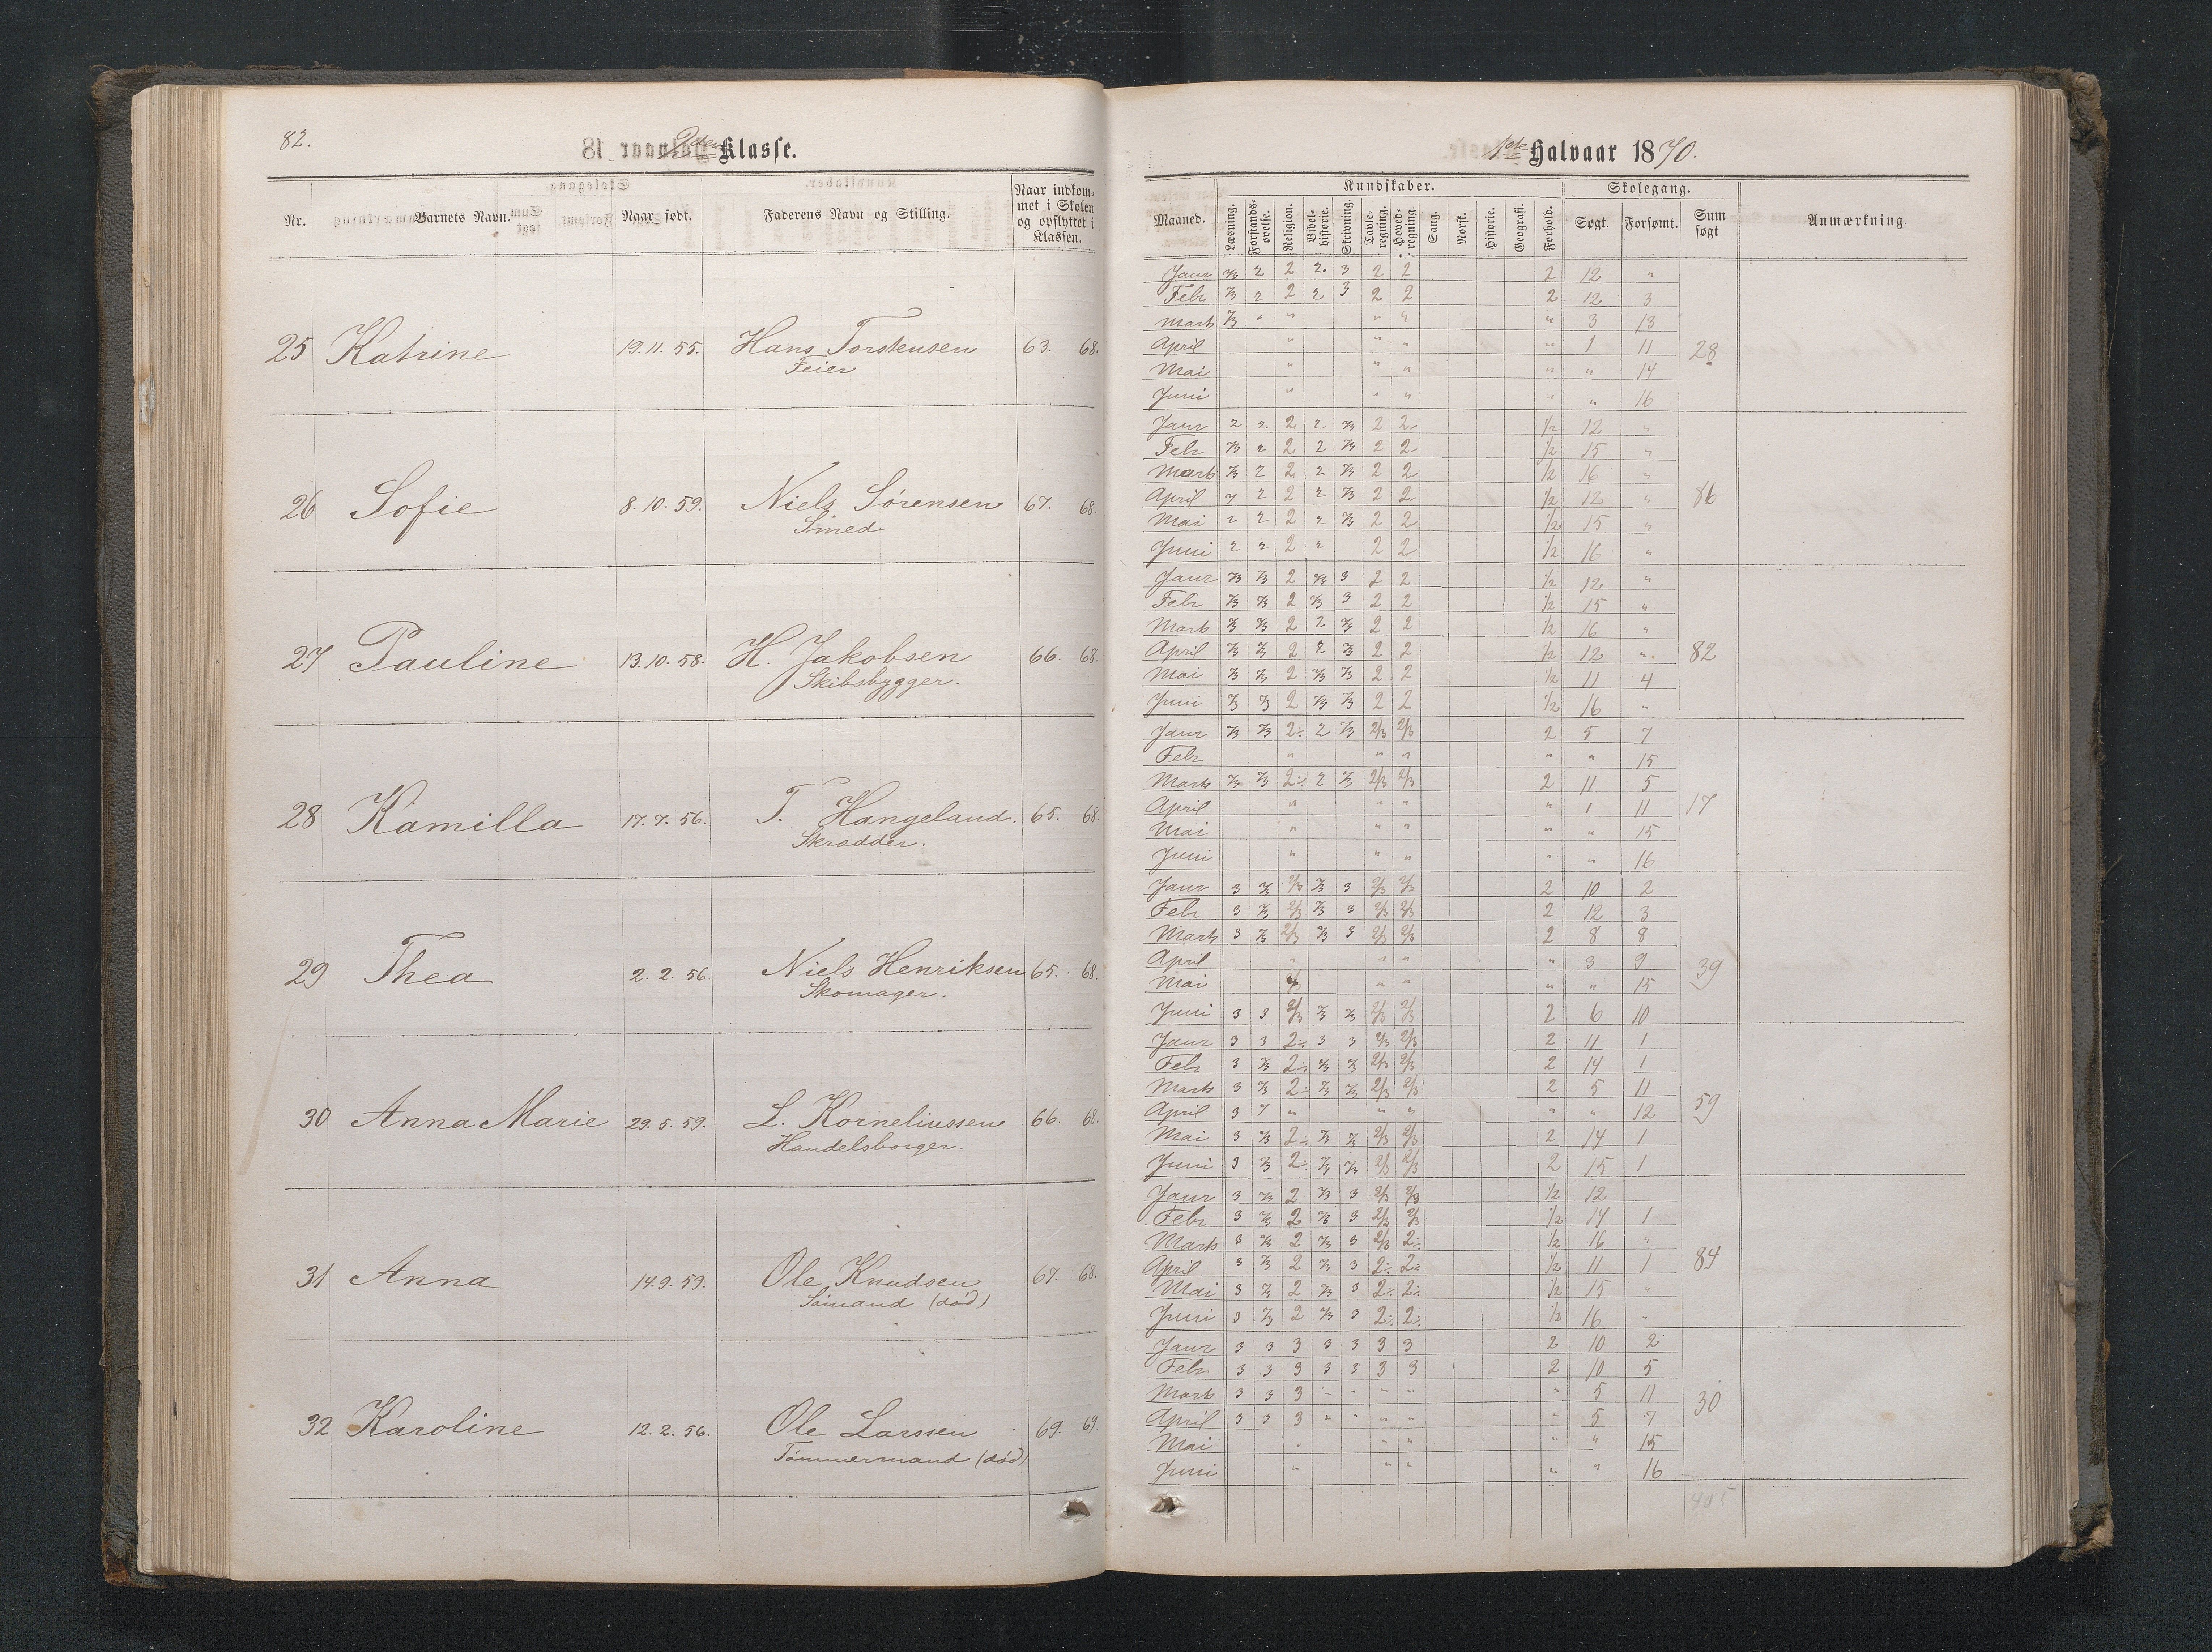 82.
2den Klasse.
Nr.
Barnets Navn.
Naar født.
Faderens Navn og Stilling.
Naar indkom-
met i Skolen
og opflyttet i
Klassen.
25 Katrine 19.11.55. Hans Torstensen 63. 68.
Feier
26 Sofie 8.10.59. Niels Sørensen 67. 68.
Smed
27 Pauline 13.10.58. H. Jakobsen 66. 68.
Skibsbygger.
28 Kamilla 17.7.56. T. Hangeland. 65. 68
Skrædder.
29 Thea 2.2.56. Niels Henriksen 65. 68.
Skomager.
30 Anna Marie 29.5.59. L. Korneliussen 66. 68.
Handelsborger.
31 Anna 14.9.59. Ole Knudsen 67. 68.
Sømand (død)
32 Karoline 12.2.56. Ole Larssen 69. 69.
Tømmermand (død)
1ste Halvaar 1870.
Kundskaber. Skolegang.
Maaned. Læsning. Forstands-øvelse. Religion. Bibel-historie. Skrivning. Tavle-regning. Hoved-regning. Sang. Norsk. Historie. Geografi. Forhold. Søgt. Forsømt. Sum søgt Anmærkning.
Janr 2/3 2 2 2 3 2 2 2 12 "
Febr 2/3 2 2 2 3 2 2 2 12 3
Marts 2/3 " " " " " 3 13
April " " " " 1 11 28
Mai " " " " " 14
Juni " " " " " 16
Janr 2 2 2 2 2/3 2 2 1/2 12 "
Febr 2/3 2 2 2 2/3 2 2 1/2 15 "
Marts 2/3 2 2 2 2/3 2 2 1/2 16 "
April 2 2 2 2/3 2 2 1/2 12 " 86
Mai 2 2 2 2 2/3 2 2 1/2 15 "
Juni 2 2 2 2 2 2 1/2 16 "
Janr 2/3 2/3 2 2/3 3 2 2 1/2 12 "
Febr 2/3 2/3 2 2/3 3 2 2 1/2 15 "
Marts 2/3 2/3 2 2 2/3 2 2 1/2 16 "
April 2/3 2/3 2 2 2/3 2 2 1/2 12 " 82
Mai 2/3 2/3 2 2/3 2/3 2 2 1/2 11 4
Juni 2/3 2/3 2 2/3 2/3 2 2 1/2 16 "
Janr 2/3 2/3 2÷ 2 2/3 2/3 2/3 2 5 7
Febr " " " " " 15
Marts 2/3 2/3 2÷ 2 2/3 2/3 2/3 2 11 5
April " " " " 1 11 17
Mai " " " " " 15
Juni " " " " " 16
Janr 3 2/3 2/3 2/3 3 2/3 2/3 2 10 2
Febr 3 2/3 2/3 2/3 3 2/3 2/3 2 12 3
Marts 3 2/3 2/3 2/3 3 2/3 2/3 2 8 8
April " " " " 3 9 39
Mai " " " " 15
Juni 3 3 2/3 2/3 2/3 2/3 2/3 2 6 10
Janr 3 3 2÷ 3 3 2/3 2/3 2 11 1
Febr 3 2/3 2÷ 2/3 2/3 2/3 2/3 2 14 1
Marts 3 2/3 2÷ 2/3 2/3 2/3 2/3 2 5 11
April 3 " " " " " 12 59
Mai 3 2/3 2÷ 2/3 2/3 2/3 2/3 2 14 1
Juni 3 2/3 2÷ 2/3 2/3 2/3 2/3 2 15 1
Janr 3 2/3 2 2/3 3 2/3 2/3 1/2 12
Febr 3 2/3 2 2/3 3 2/3 2/3 1/2 14 1
Marts 3 2/3 2 2/3 3 2/3 2÷ 1/2 16 "
April 3 2/3 2 2/3 3 2÷ 2÷ 1/2 11 1 84
Mai 3 2/3 2 2/3 3 2÷ 2÷ 1/2 15 "
Juni 3 2/3 2 2/3 3 2÷ 2÷ 1/2 16 "
Janr 3 3 3 3 3 3 3 2 10 2
Febr 3 3 3 3 3 3 3 2 10 5
Marts 3 3 3 " " " " " 5 11
April 3 3 3 " " " " " 5 7 30
Mai " " " " " 15
Juni " " " " " 16